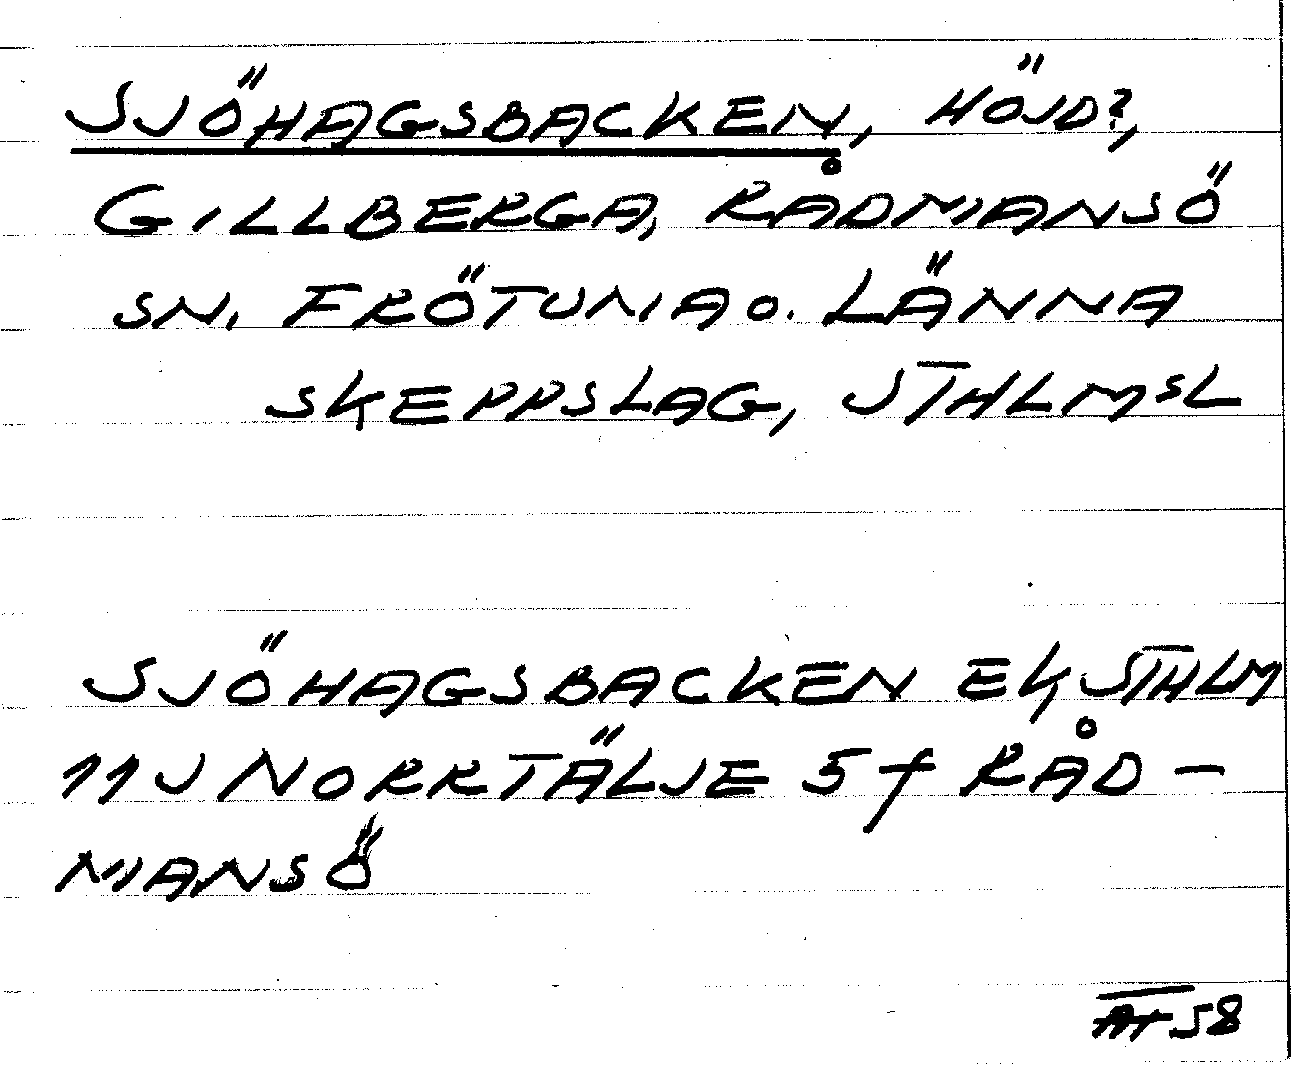 SJÖHAGSBACKEN, HÖJD?,
GILLBERGA, RÅDMANSÖ
SN, FRÖTUNA O. LÄNNA
SKEPPSLAG, STHLMSL
SJÖHAGSBACKEN EK STHLM
11J NORRTÄLJE 5f RÅD-
MANSÖ
58